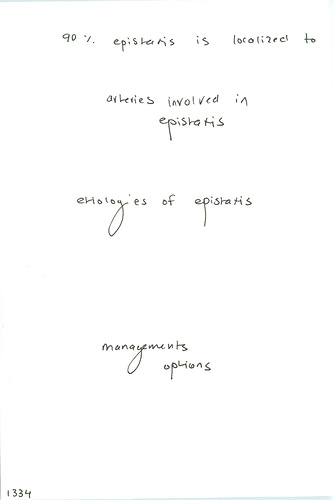 90 % epistaxis is localized to
arteries involved in
epistaxis
etiologies of epistaxis
managements
options
1334